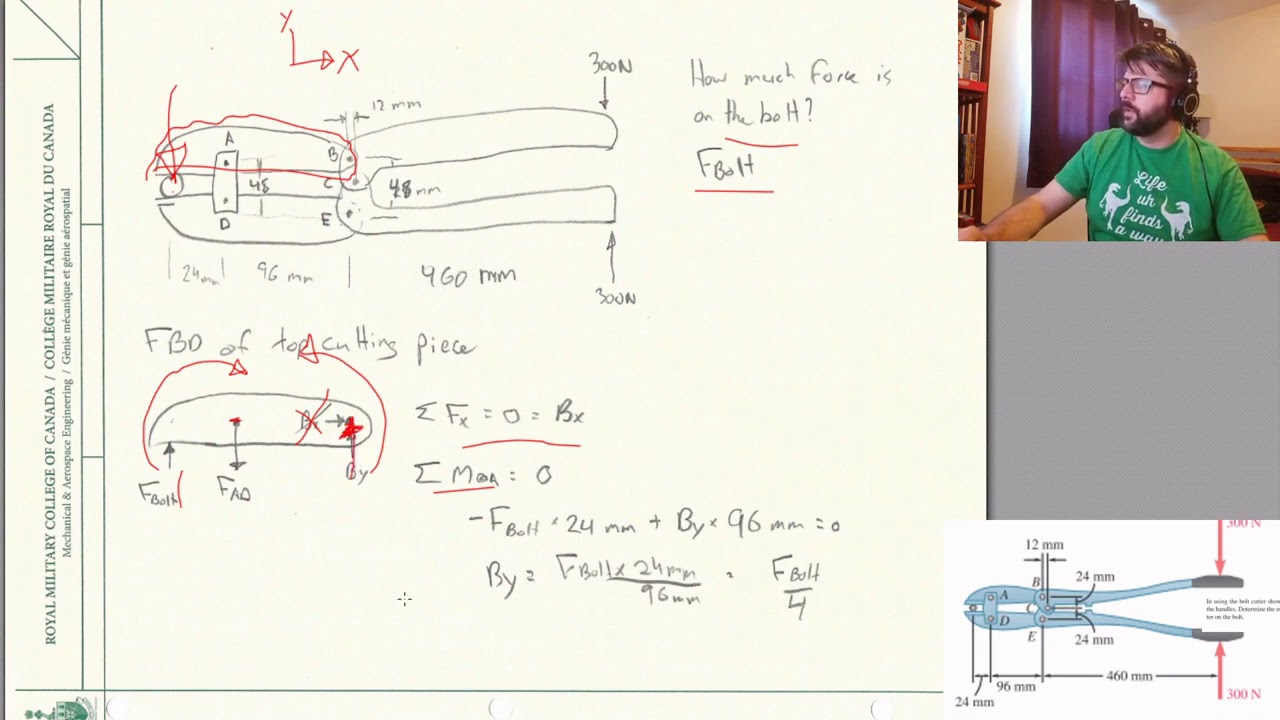 ROYAL MILITARY COLLEGE OF CANADA / COLLÈGE MILITAIRE ROYAL DU CANADA
Mechanical & Aerospace Engineering / Génie mécanique et génie aérospatial
Y
X
300N
12 mm
A
B
C
48
48 mm
D
E
24mm
96 mm
460 mm
300N
How much Force is
on the bolt?
FBolt
FBD of top cutting piece
Bx
By
FBolt
FAD
Σ Fx = 0 = Bx
Σ M@A = 0
-FBolt × 24 mm + By × 96 mm = 0
By = FBolt × 24mm / 96mm = FBolt / 4
Life
uh
finds
a way
300 N
12 mm
24 mm
B
A
C
D
E
24 mm
460 mm
96 mm
24 mm
300 N
In using the bolt cutter show
the handles. Determine the m
ter on the bolt.